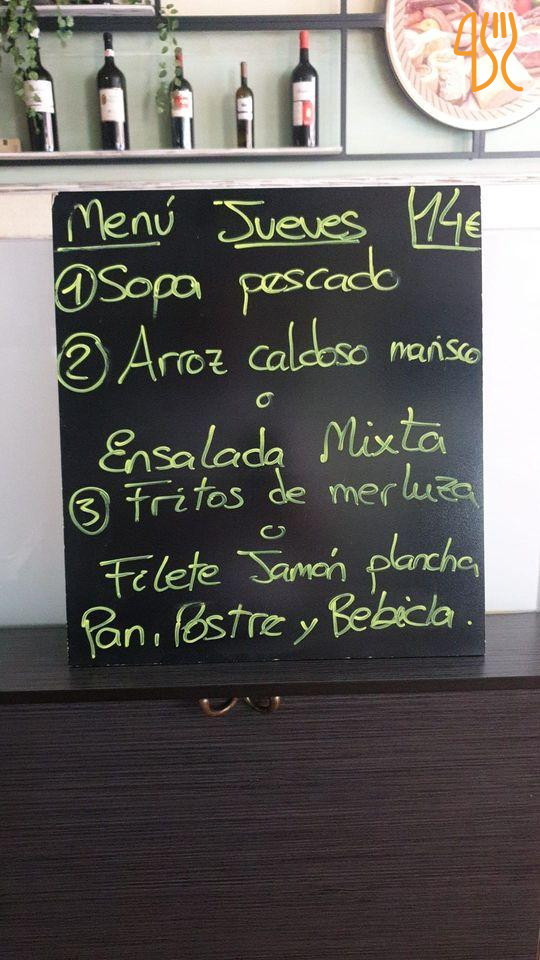 Menú Jueves 14€
① Sopa pescado
② Arroz caldoso marisco
o
Ensalada Mixta
③ Fritos de merluza
o
Filete Jamón plancha
Pan, Postre y Bebida.